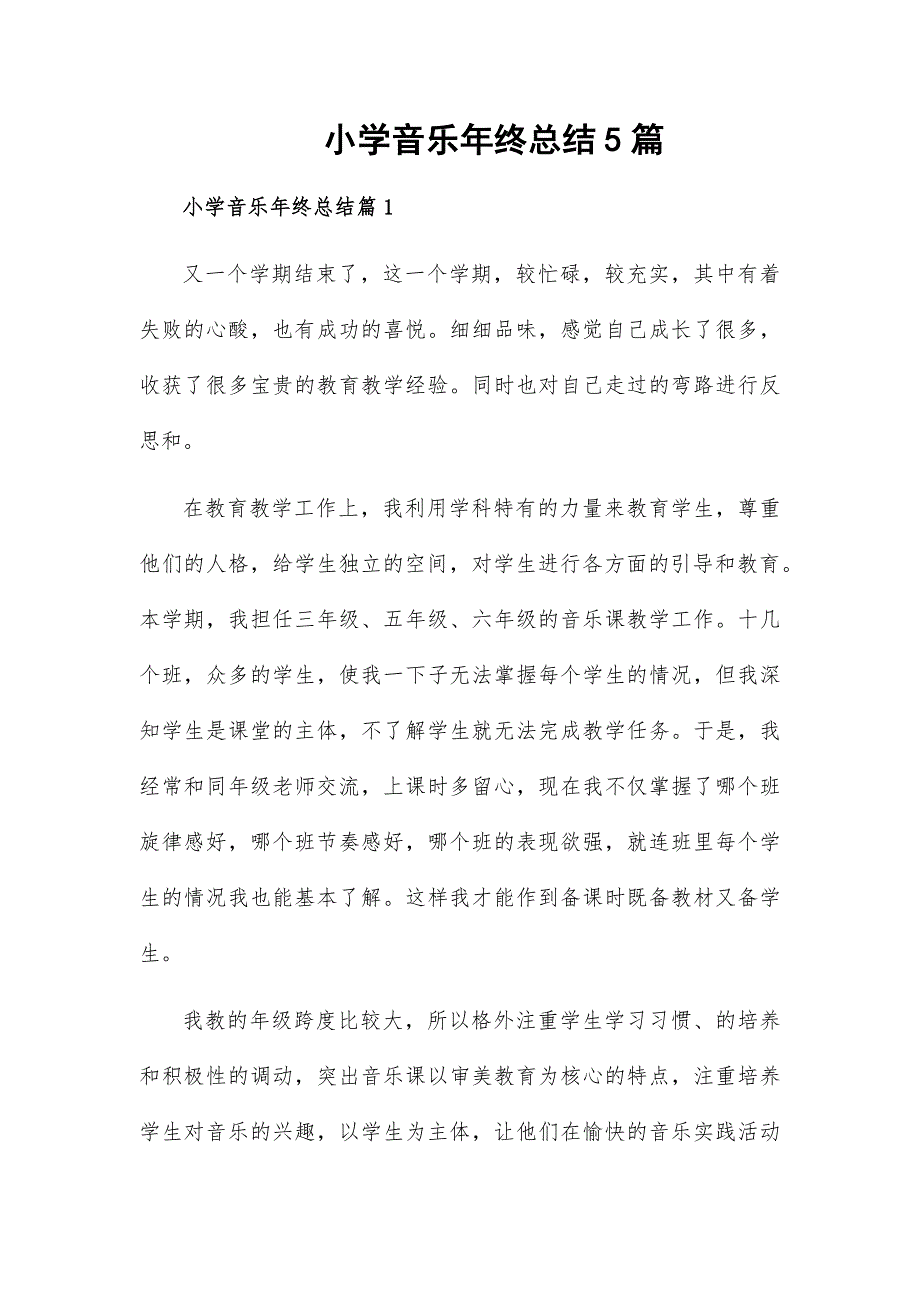 小学音乐年终总结5篇
小学音乐年终总结篇1
又一个学期结束了，这一个学期，较忙碌，较充实，其中有着
失败的心酸，也有成功的喜悦。细细品味，感觉自己成长了很多，
收获了很多宝贵的教育教学经验。同时也对自己走过的弯路进行反
思和。
在教育教学工作上，我利用学科特有的力量来教育学生，尊重
他们的人格，给学生独立的空间，对学生进行各方面的引导和教育。
本学期，我担任三年级、五年级、六年级的音乐课教学工作。十几
个班，众多的学生，使我一下子无法掌握每个学生的情况，但我深
知学生是课堂的主体，不了解学生就无法完成教学任务。于是，我
经常和同年级老师交流，上课时多留心，现在我不仅掌握了哪个班
旋律感好，哪个班节奏感好，哪个班的表现欲强，就连班里每个学
生的情况我也能基本了解。这样我才能作到备课时既备教材又备学
生。
我教的年级跨度比较大，所以格外注重学生学习习惯、的培养
和积极性的调动，突出音乐课以审美教育为核心的特点，注重培养
学生对音乐的兴趣，以学生为主体，让他们在愉快的音乐实践活动